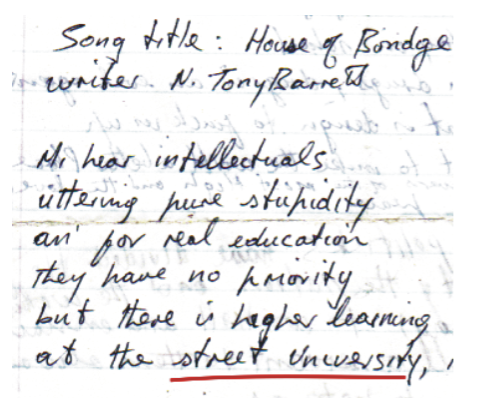 Song title : House of Bondge
writer N. Tony Barrett
Mi hear intellectuals
uttering pure stupidity
an' for real education
they have no priority
but there is higher learning
at the street University,